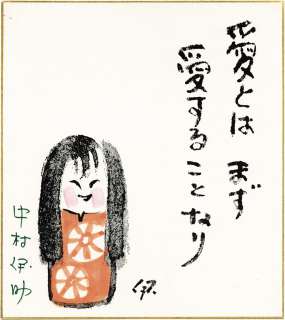 愛とは まず
愛する ことなり
伊
中村伊助